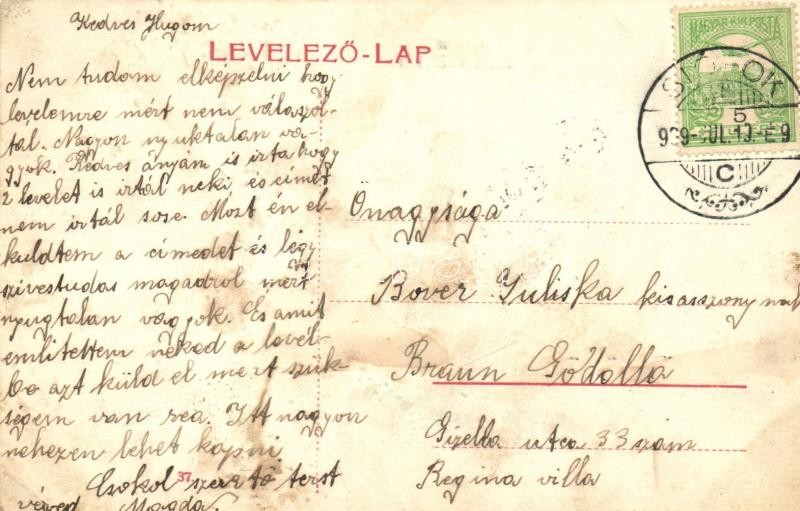 Kedves Hugom
LEVELEZŐ-LAP
Nem tudom elképzelni hogy
levelemre mért nem válaszol-
tál. Nagyon nyuktalan va-
gyok. Kedves ányám is irta hogy
2 levelet is irtál neki, és címet
nem irtál sose. Mozt én el-
küldtem a címedet és légy
szivestudas magadrol mert
nyugtalan vagyok. És amit
emlitettem neked a levél-
be azt küld el mert szük-
ségem van reá. Itt nagyon
nehezen lehet kapni
Csokol szerető terst
véred Magda.
37
MAGYAR KIR. POSTA
5
C
Önagysága
Bover Juliska kisasszony nak
Braun Gödöllő
Gizella utca 33 szám
Regina villa